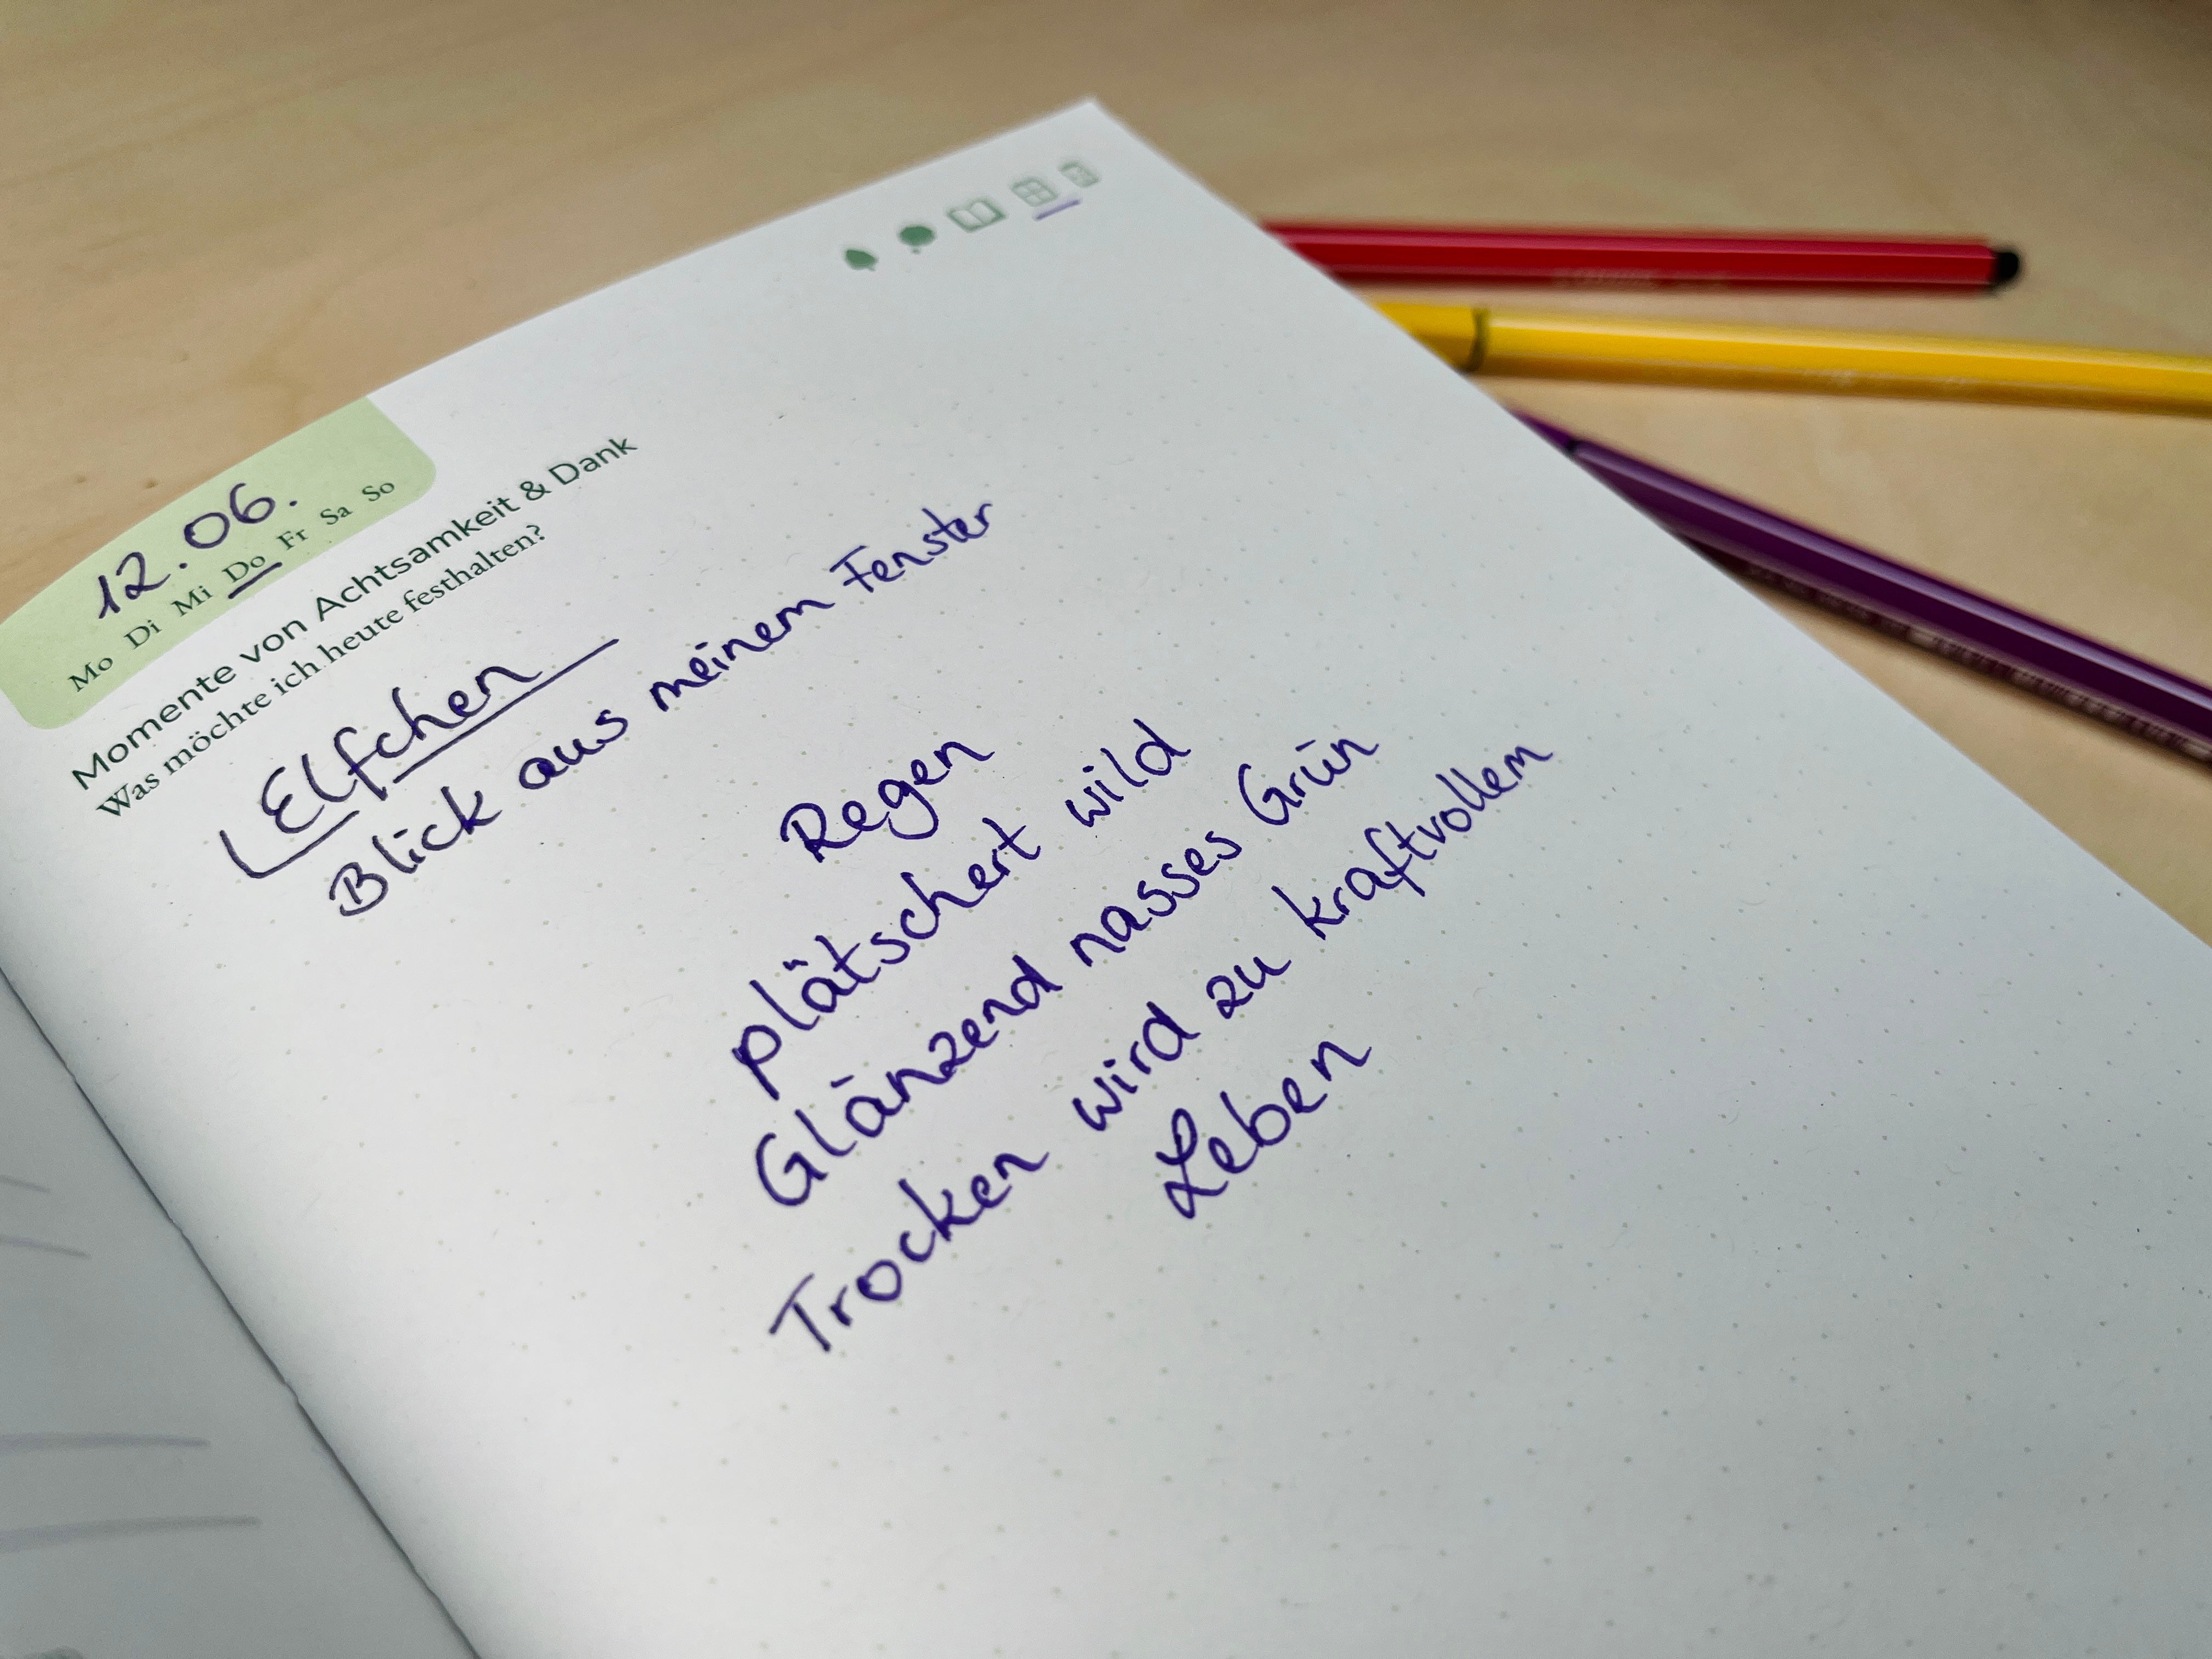 12.06.
Mo Di Mi Do Fr Sa So
Momente von Achtsamkeit & Dank
Was möchte ich heute festhalten?
Elfchen
Blick aus meinem Fenster
Regen
plätschert wild
Glänzend nasses Grün
Trocken wird zu kraftvollem
Leben